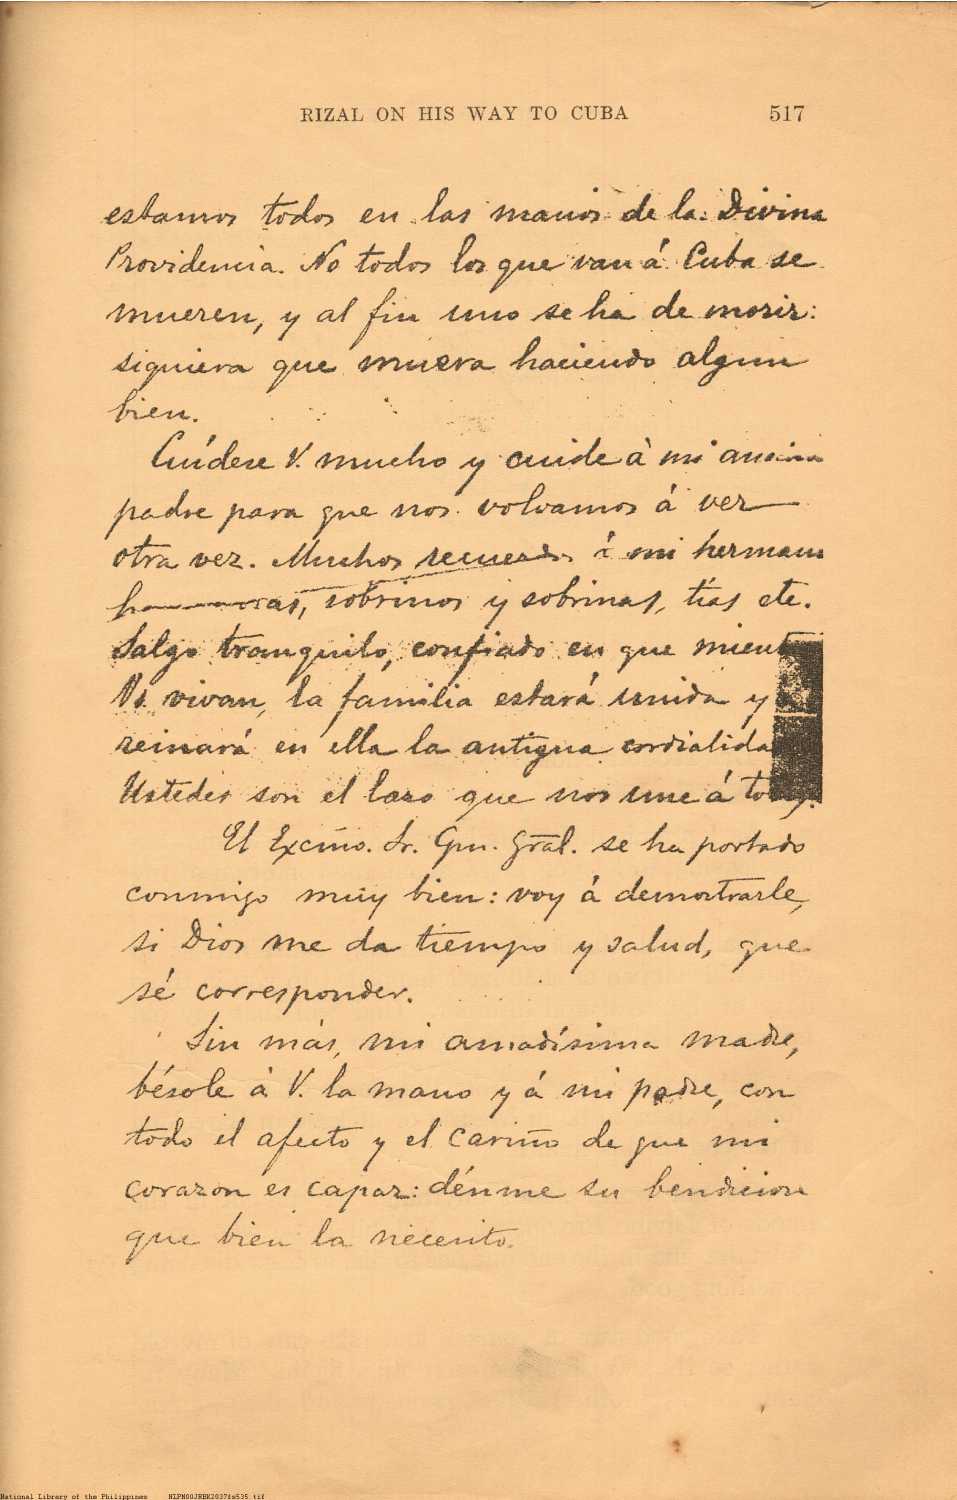 RIZAL ON HIS WAY TO CUBA 517
estamos todos en las manos de la Divina
Providencia. No todos los que van á Cuba se
mueren, y al fin uno se ha de morir:
siquiera que muera haciendo algun
bien.
Cuídese V. mucho y cuide à mi
padre para que nos volvamos á ver
otra vez. Muchos recuerdos á mi
sobrinos y sobrinas, tías etc.
Salgo tranquilo, confiado en que mient
Vs. vivan, la familia estará unida y
reinará en ella la antigua cordialida
Ustedes son el lazo que nos une á
El Excmo. Sr. Gral. se ha portado
conmigo muy bien: voy á demostrarle,
si Dios me da tiempo y salud, que
sé corresponder.
Sin más, mi amadísima madre,
bésole à V. la mano y á mi padre, con
todo el afecto y el cariño de que mi
corazon es capaz: dénme su bendicion
que bien la necesito.
National Library of the Philippines